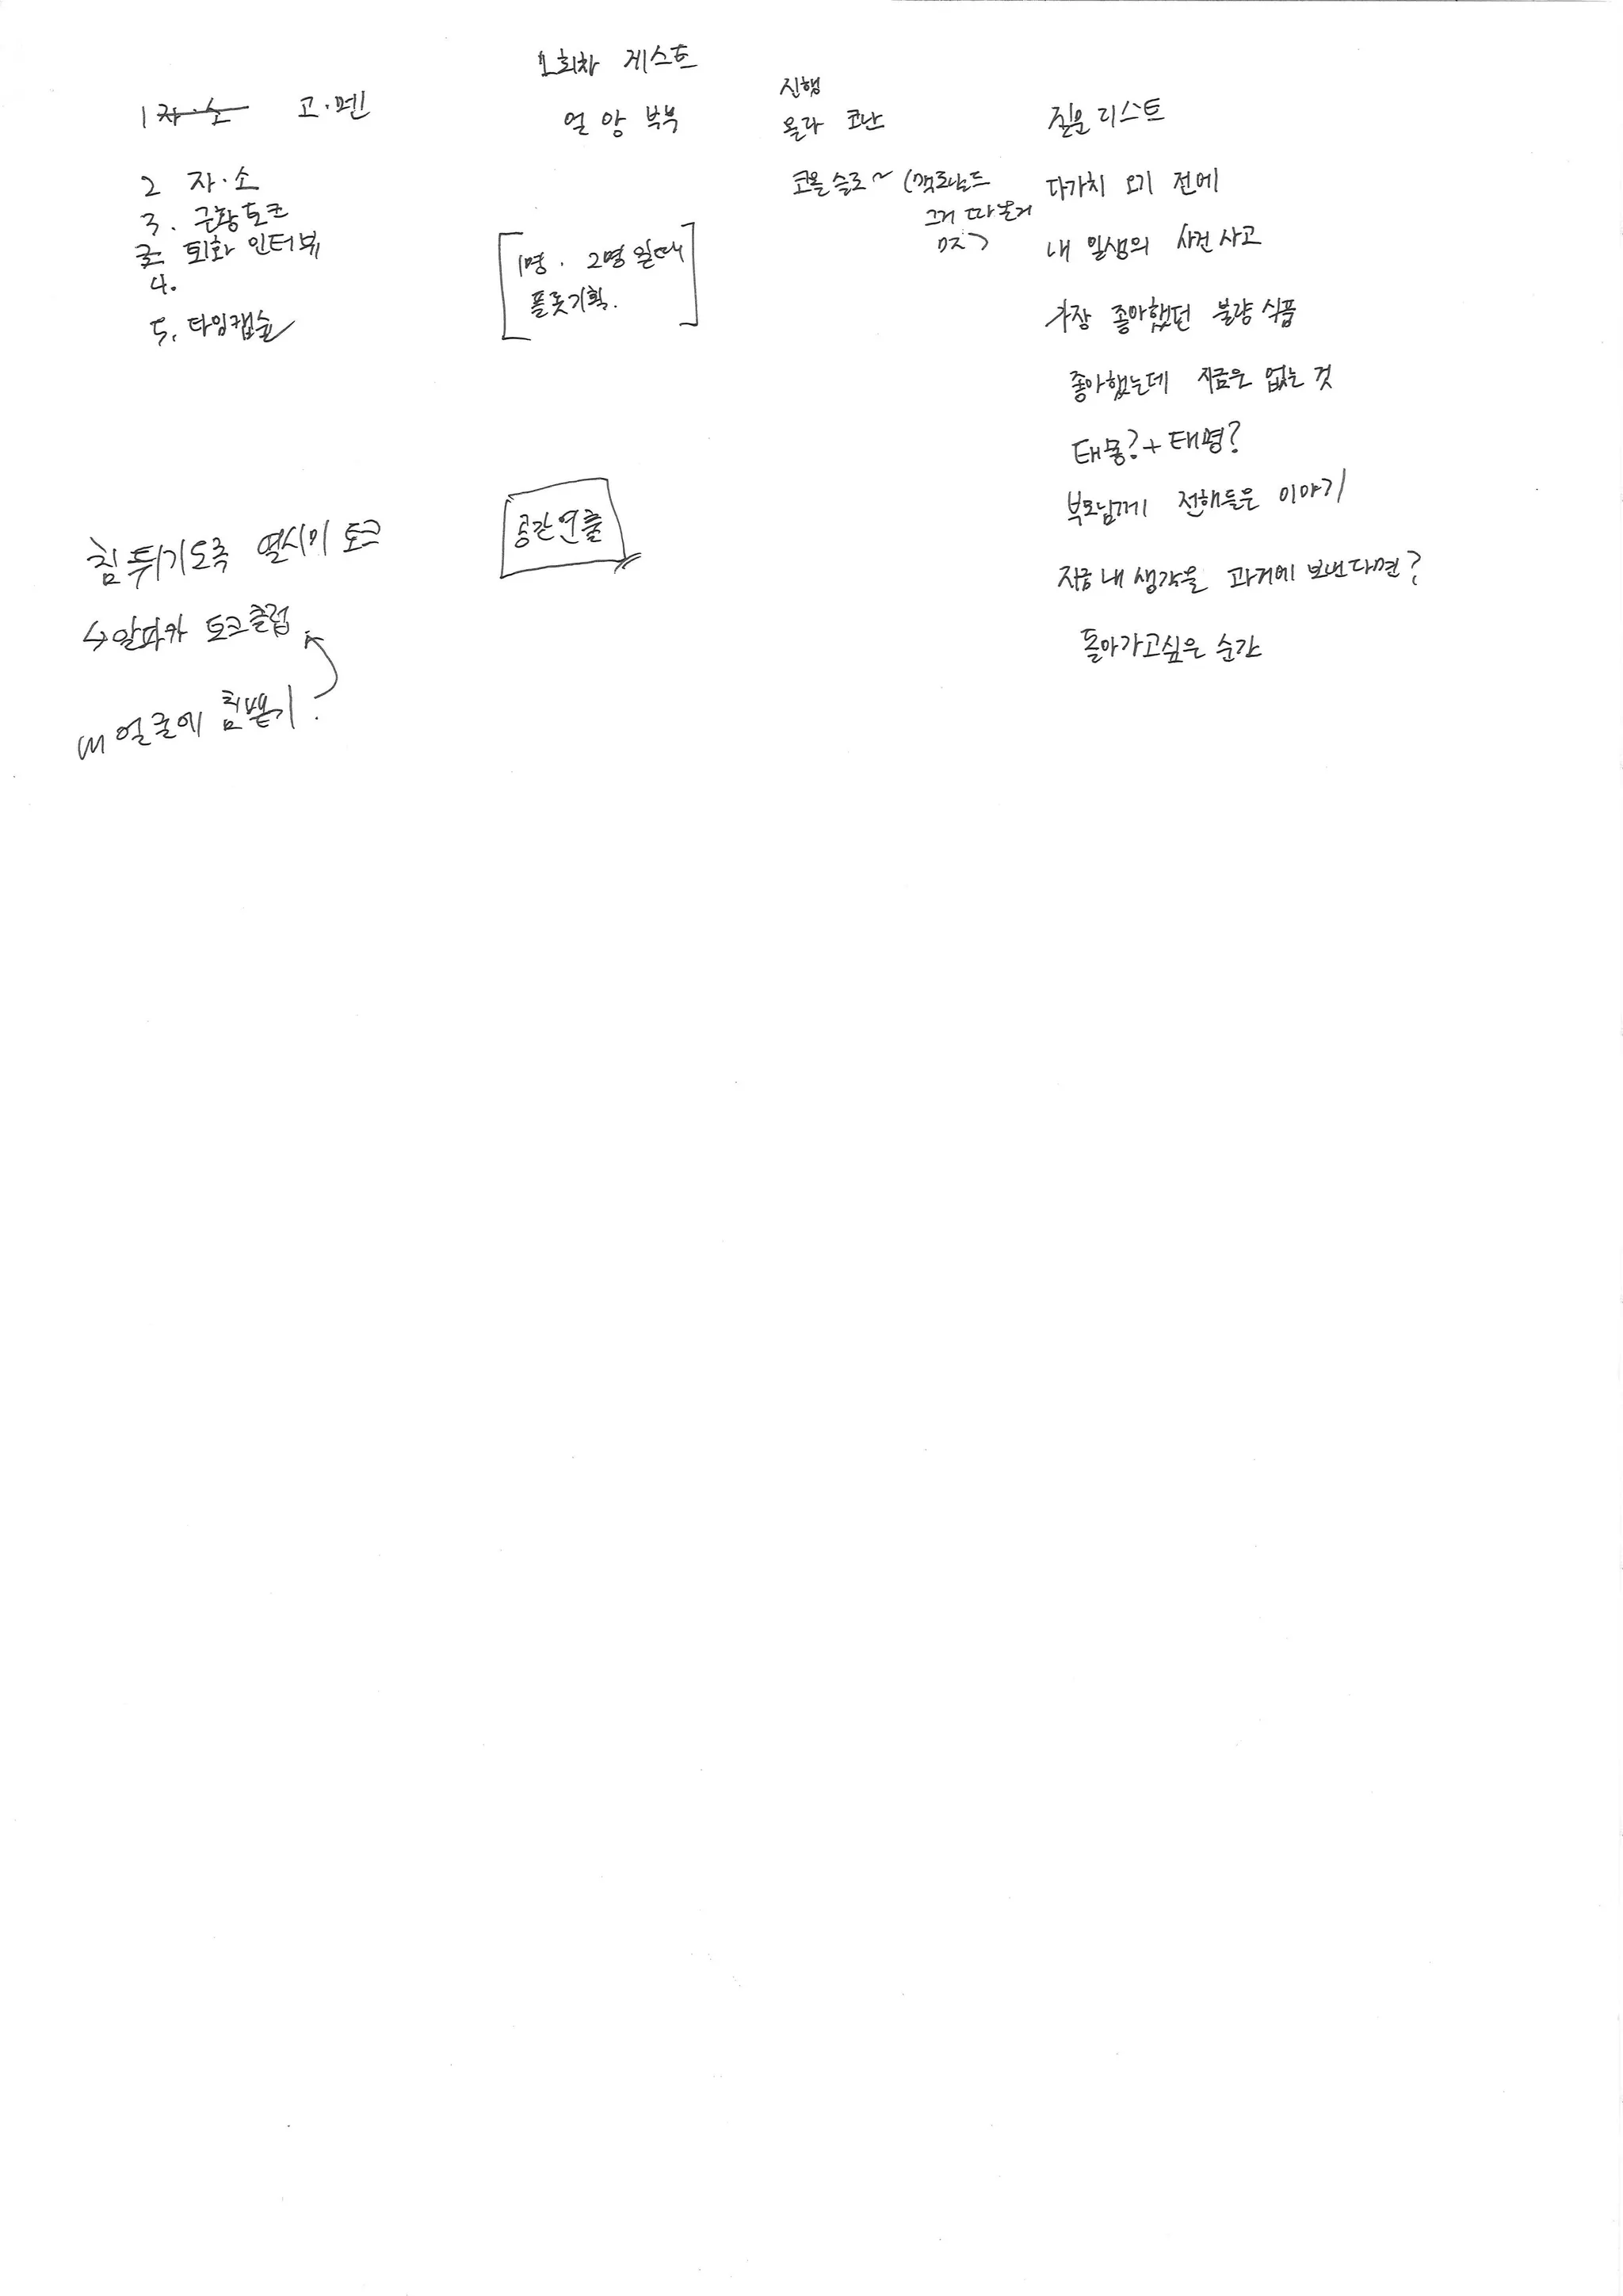 1 자·소 고·멘
2 자·소
3. 근황토크
3 퇴화 인터뷰
4.
5. 타임캡슐
침 튀기도록 열시미 토크
↳ 알파카 토크클럽
얼굴에 침뱉기?
1회차 게스트
얼 앙 부부
[1명. 2명일때
플롯기획.]
공간연출
진행
올라 코난
코울슬로~ (맥도날드
그거 따온거
맞ㄱ)
질문 리스트
다가치 오기 전에
내 일생의 사건 사고
가장 좋아했던 불량식품
좋아했는데 지금은 없는 것
태몽?+태명?
부모님께 전해들은 이야기
지금 내 생각을 과거에 보낸다면?
돌아가고싶은 순간